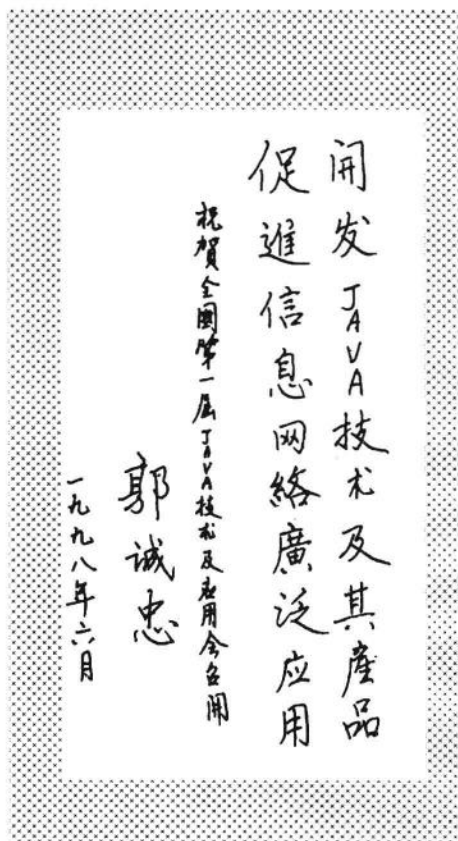 開发JAVA技术及其産品
促進信息网絡廣泛应用
祝賀全国第一届JAVA技术及应用会召開
郭诚忠
一九九八年六月